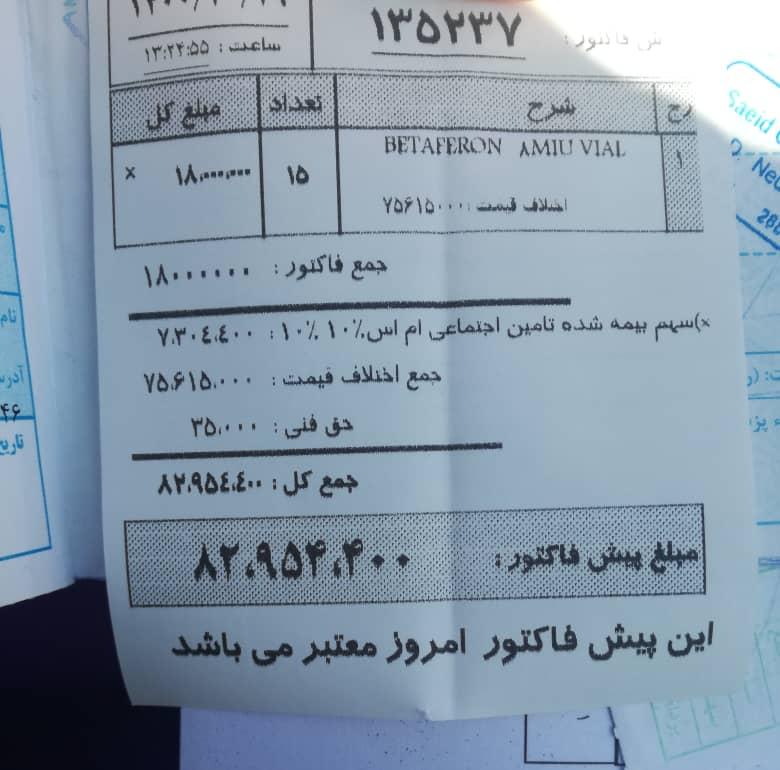 ش فاکتور: ۱۳۵۲۳۷
ساعت: ۱۳:۲۴:۵۵
رج شرح تعداد مبلغ کل
۱ BETAFERON ۸MIU VIAL ۱۵ ۱۸,۰۰۰,۰۰۰ ×
اختلاف قیمت: ۷۵۶۱۵۰۰۰
جمع فاکتور: ۱۸۰۰۰۰۰۰
×)سهم بیمه شده تامین اجتماعی ام اس ۱۰٪ ۱۰٪: ۷,۳۰۴,۴۰۰
جمع اختلاف قیمت: ۷۵,۶۱۵,۰۰۰
حق فنی: ۳۵,۰۰۰
جمع کل: ۸۲,۹۵۴,۴۰۰
مبلغ پیش فاکتور: ۸۲,۹۵۴,۴۰۰
این پیش فاکتور امروز معتبر می باشد
Saeid
نام
آدرس
۴۶
تاریخ